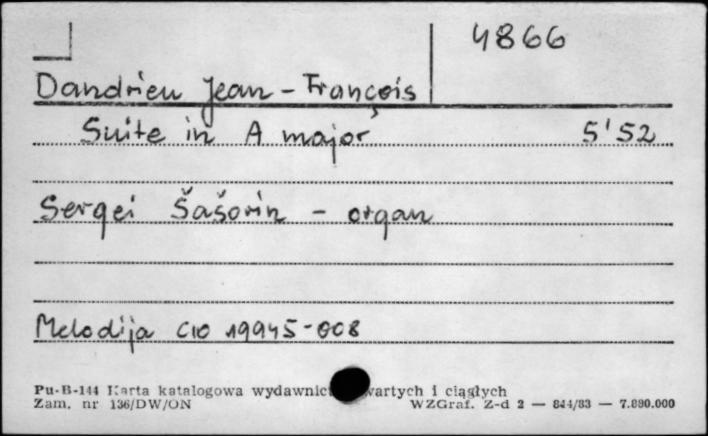 4866
Dandrieu Jean - François
Suite in A major 5'52
Sergei Šašorin - organ
Melodija C10 19945-008
Pu-B-144 Karta katalogowa wydawnic wartych i ciągłych
Zam. nr 136/DW/ON WZGraf. Z-d 2 — 844/83 — 7.890.000